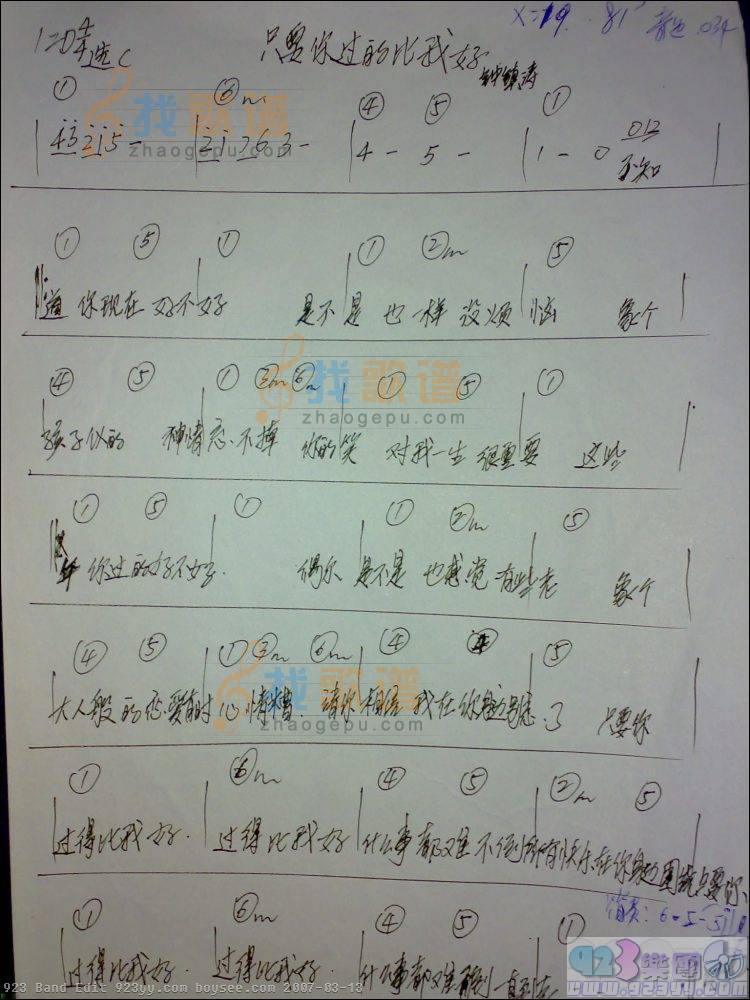 1=D 4/4 选C
只要你过的比我好
钟镇涛
① ⑥m ④ ⑤ ①
4 3 2 1 5 - 2 1 7 6 3 - 4 - 5 - 1 - 0 012
不知
① ⑤ ① ① ②m ⑤
道 你现在 好不好 是不是 也一样 没烦 恼 象个
④ ⑤ ① ③m ⑥m ① ⑤ ①
孩子似的 神情忘不掉 你的笑 对我一生 很重要 这些
① ⑤ ① ① ②m ⑤
年 你过的好不好 偶尔 是不是 也感觉 有些老 象个
④ ⑤ ① ③m ⑥m ④ ⑤
大人般的恋爱有时心情糟 请你相信我在你身边别忘了 只要你
① ⑥m ④ ⑤ ②m ⑤
过得比我好 过得比我好 什么事都难不倒 所有快乐在你身边围绕 只要你
① ⑥m ④ ⑤ ①
过得比我好 过得比我好 什么事都难不倒 一直到老
找歌谱
zhaogepu.com
找歌谱
zhaogepu.com
找歌谱
zhaogepu.com
923樂團
www.923yy.com
923 Band Edit 923yy.com boysee.com 2007-03-13